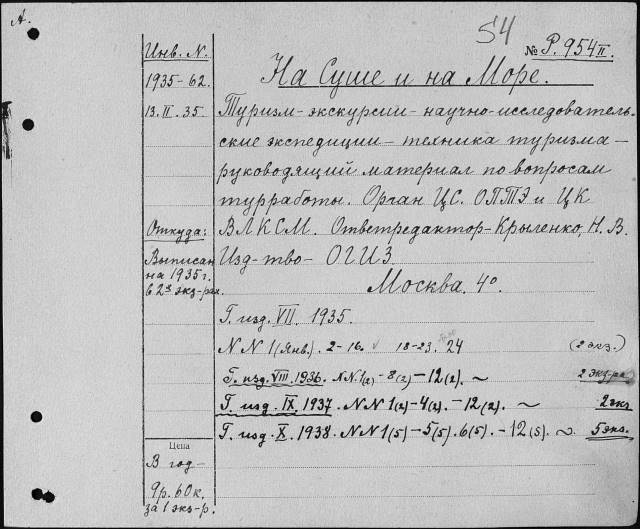 А.
54
№ Р.954II.
Инв. N.
1935-62.
13.II.35.
На Суше и на Море.
Туризм-экскурсии-научно-исследователь-
ские экспедиции-техника туризма-
руководящий материал по вопросам
турработы. Орган ЦС. ОПТЭ и ЦК
ВЛКСМ. Ответредактор-Крыленко, Н. В.
Изд-тво-ОГИЗ.
Москва. 4°.
Откуда:
Выписан
на 1935 г.
в 2х экз-рах
Г. изд. VII. 1935.
NN 1 (Янв.). 2-16. 18-23. 24 (2 экз.)
Г. изд. VIII. 1936. NN 1(2) - 8(2) - 12(2). ~ 2 экз-ра
Г. изд. IX. 1937. NN 1(2) - 4(2). - 12(2). ~ 2 экз
Г. изд. X. 1938. NN 1(5) - 5(5). 6(5). - 12(5). ~ 5 экз.
Цена
В год-
9 р. 60 к.
за 1 экз-р.